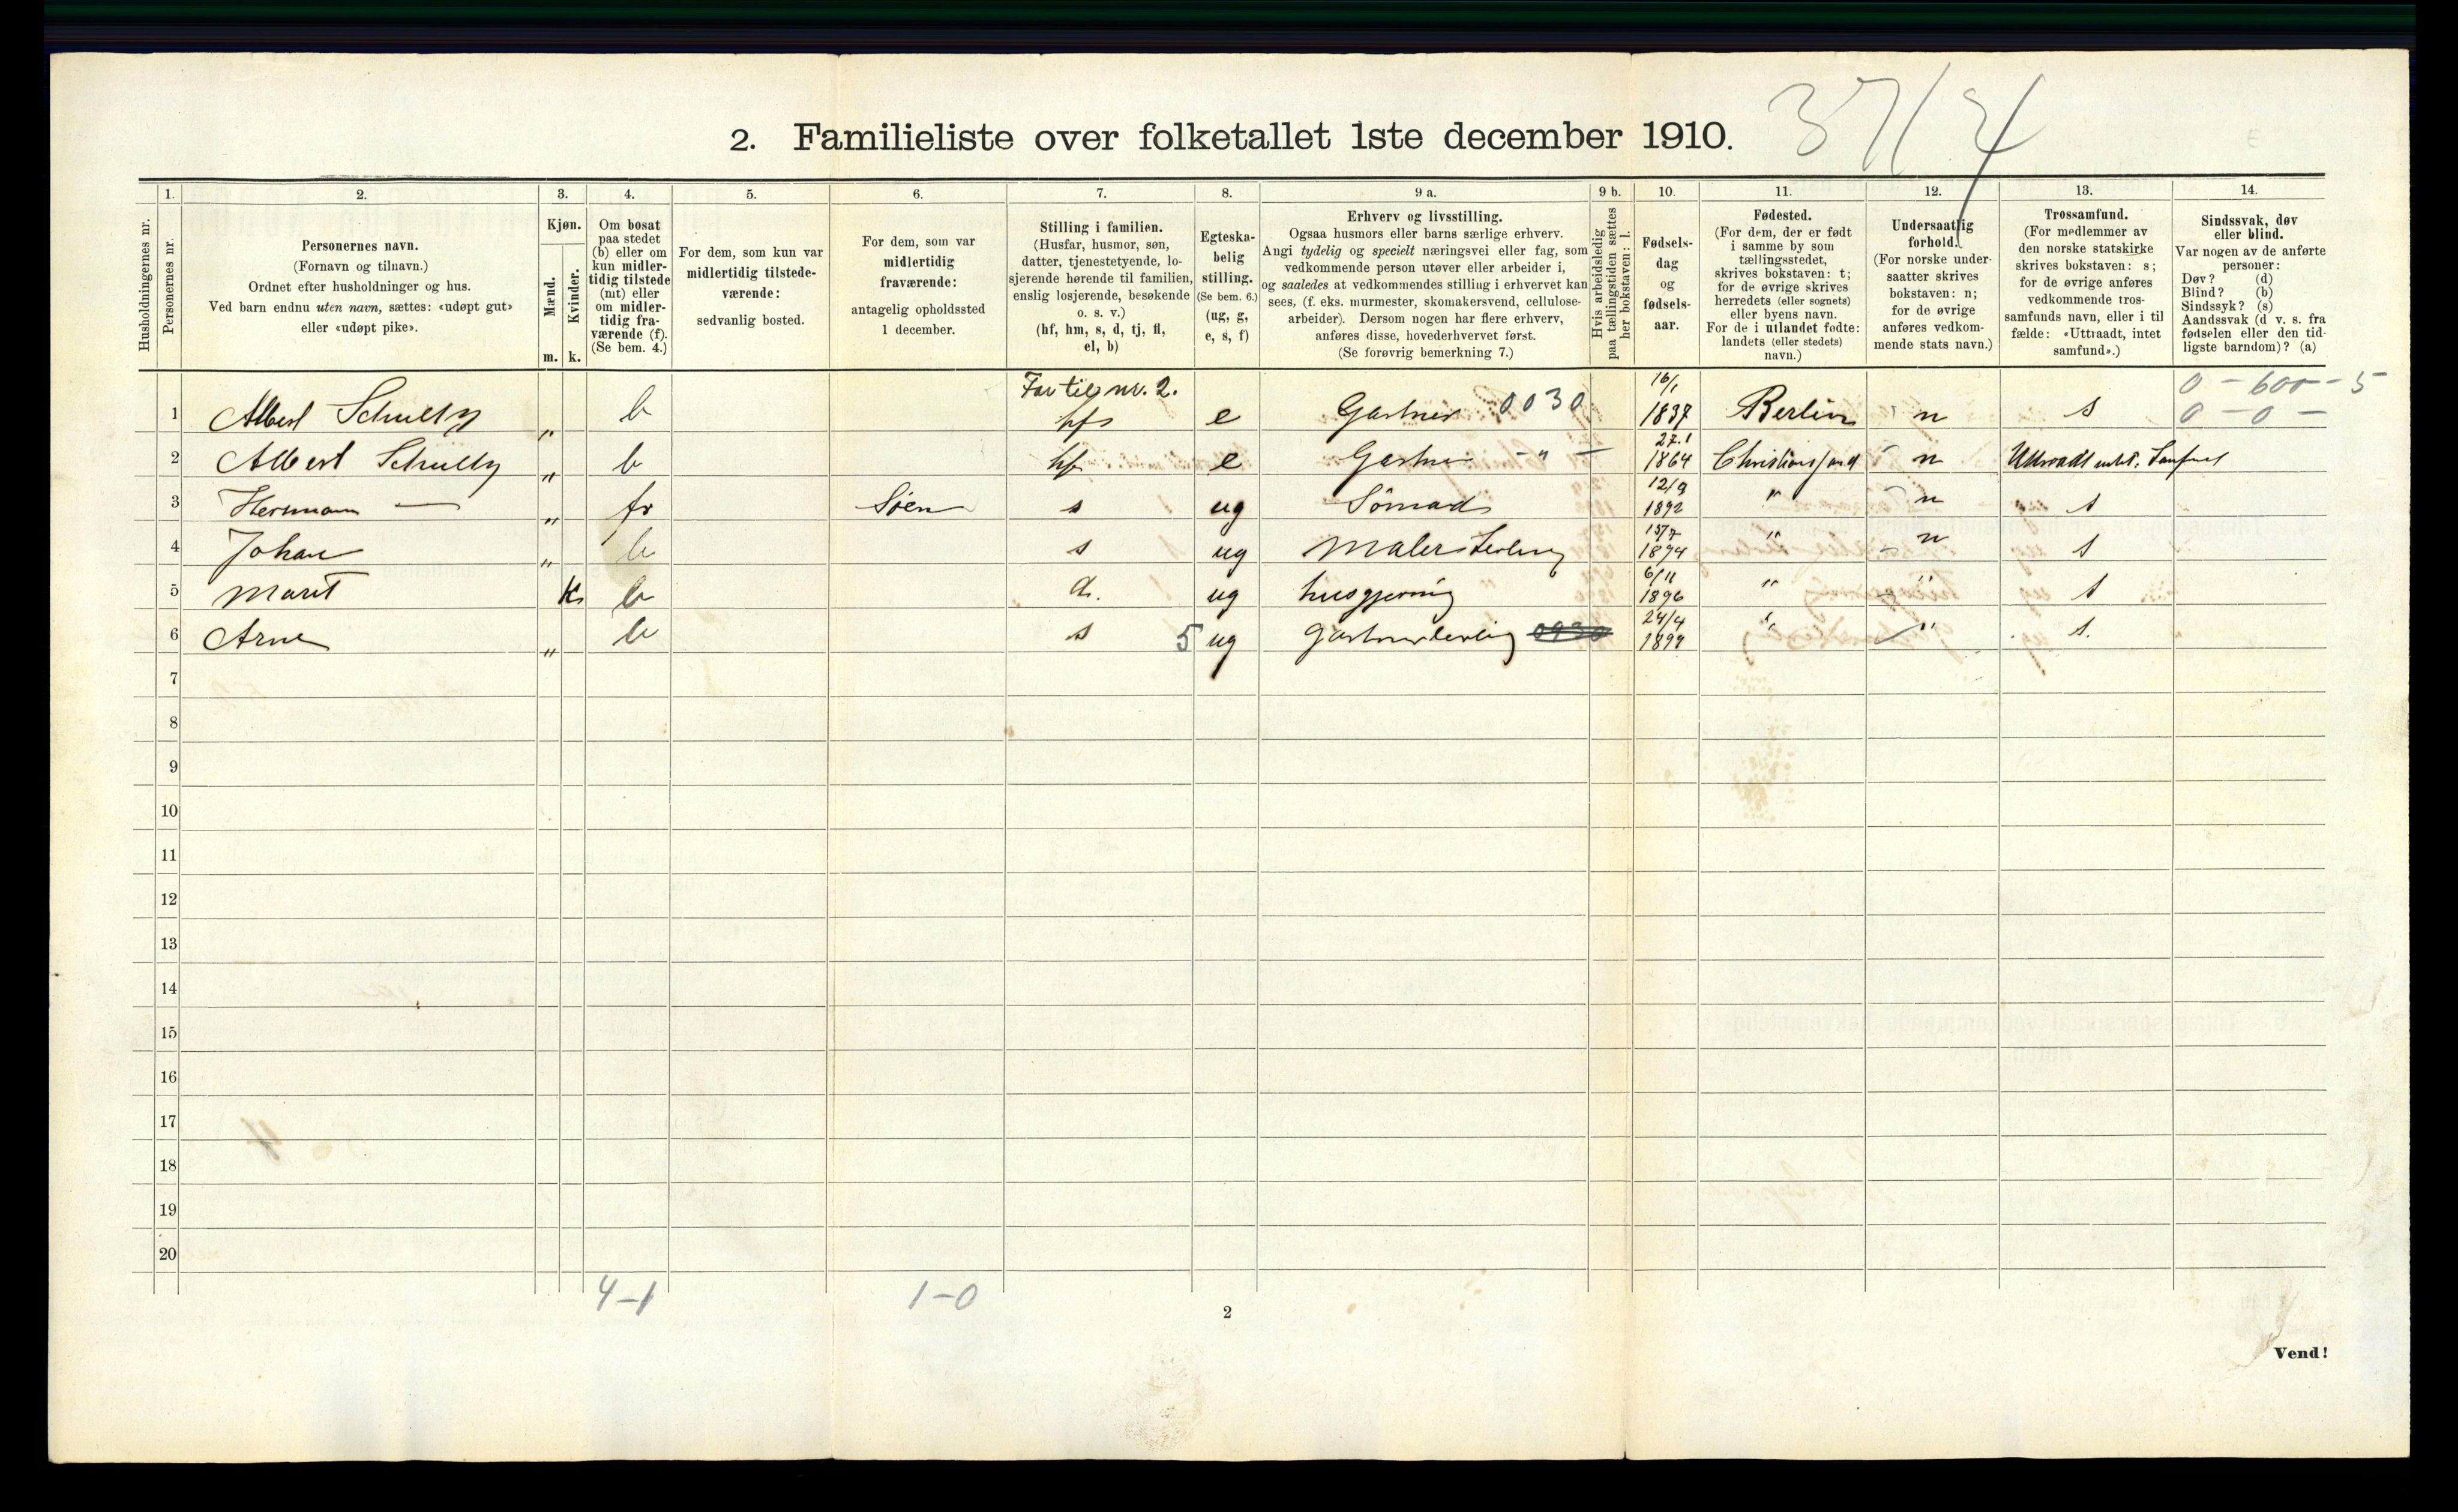 37/4
2. Familieliste over folketallet 1ste december 1910.
1. 2. 3. 4. 5. 6. 7. 8. 9 a. 9 b. 10. 11. 12. 13. 14.
Husholdningernes nr.
Personernes nr.
Personernes navn.
(Fornavn og tilnavn.)
Ordnet efter husholdninger og hus.
Ved barn endnu uten navn, sættes: «udøpt gut»
eller «udøpt pike».
Kjøn.
Mænd.
Kvinder.
m. k.
Om bosat
paa stedet
(b) eller om
kun midler-
tidig tilstede
(mt) eller
om midler-
tidig fra-
værende (f).
(Se bem. 4.)
For dem, som kun var
midlertidig tilstede-
værende:
sedvanlig bosted.
For dem, som var
midlertidig
fraværende:
antagelig opholdssted
1 december.
Stilling i familien.
(Husfar, husmor, søn,
datter, tjenestetyende, lo-
sjerende hørende til familien,
enslig losjerende, besøkende
o. s. v.)
(hf, hm, s, d, tj, fl,
el, b)
Egteska-
belig
stilling.
(Se bem. 6.)
(ug, g,
e, s, f)
Erhverv og livsstilling.
Ogsaa husmors eller barns særlige erhverv.
Angi tydelig og specielt næringsvei eller fag, som
vedkommende person utøver eller arbeider i,
og saaledes at vedkommendes stilling i erhvervet kan
sees, (f. eks. murmester, skomakersvend, cellulose-
arbeider). Dersom nogen har flere erhverv,
anføres disse, hovederhvervet først.
(Se forøvrig bemerkning 7.)
Hvis arbeidsledig
paa tællingstiden sættes
her bokstaven: l.
Fødsels-
dag
og
fødsels-
aar.
Fødested.
(For dem, der er født
i samme by som
tællingsstedet,
skrives bokstaven: t;
for de øvrige skrives
herredets (eller sognets)
eller byens navn.
For de i utlandet fødte:
landets (eller stedets)
navn.)
Undersaatlig
forhold.
(For norske under-
saatter skrives
bokstaven: n;
for de øvrige
anføres vedkom-
mende stats navn.)
Trossamfund.
(For medlemmer av
den norske statskirke
skrives bokstaven: s;
for de øvrige anføres
vedkommende tros-
samfunds navn, eller i til
fælde: «Uttraadt, intet
samfund».)
Sindssvak, døv
eller blind.
Var nogen av de anførte
personer:
Døv? (d)
Blind? (b)
Sindssyk? (s)
Aandssvak (d v. s. fra
fødselen eller den tid-
ligste barndom)? (a)
Far til nr. 2. 16/1 0 - 600 - 5
1 Albert Schultz „ b hf e Gartner 0030 1837 Berlin n s 0 - 0 -
27.1
2 Albert Schultz „ b hf e Gartner - " - 1864 Christiansand n Uttraadt intet. Samfund
12/9
3 Hermann — „ fr Søen s ug Sømand 1892 " n s
15/7
4 Johan „ b s ug Malerlærling 1894 " n s
6/11
5 Marit k b d. ug husgjerning 1896 " " s
24/4
6 Arne „ b s 5 ug Gartnerlærling 1899 " " s.
7
8
9
10
11
12
13
14
15
16
17
18
19
20
4-1 1-0
2
Vend!